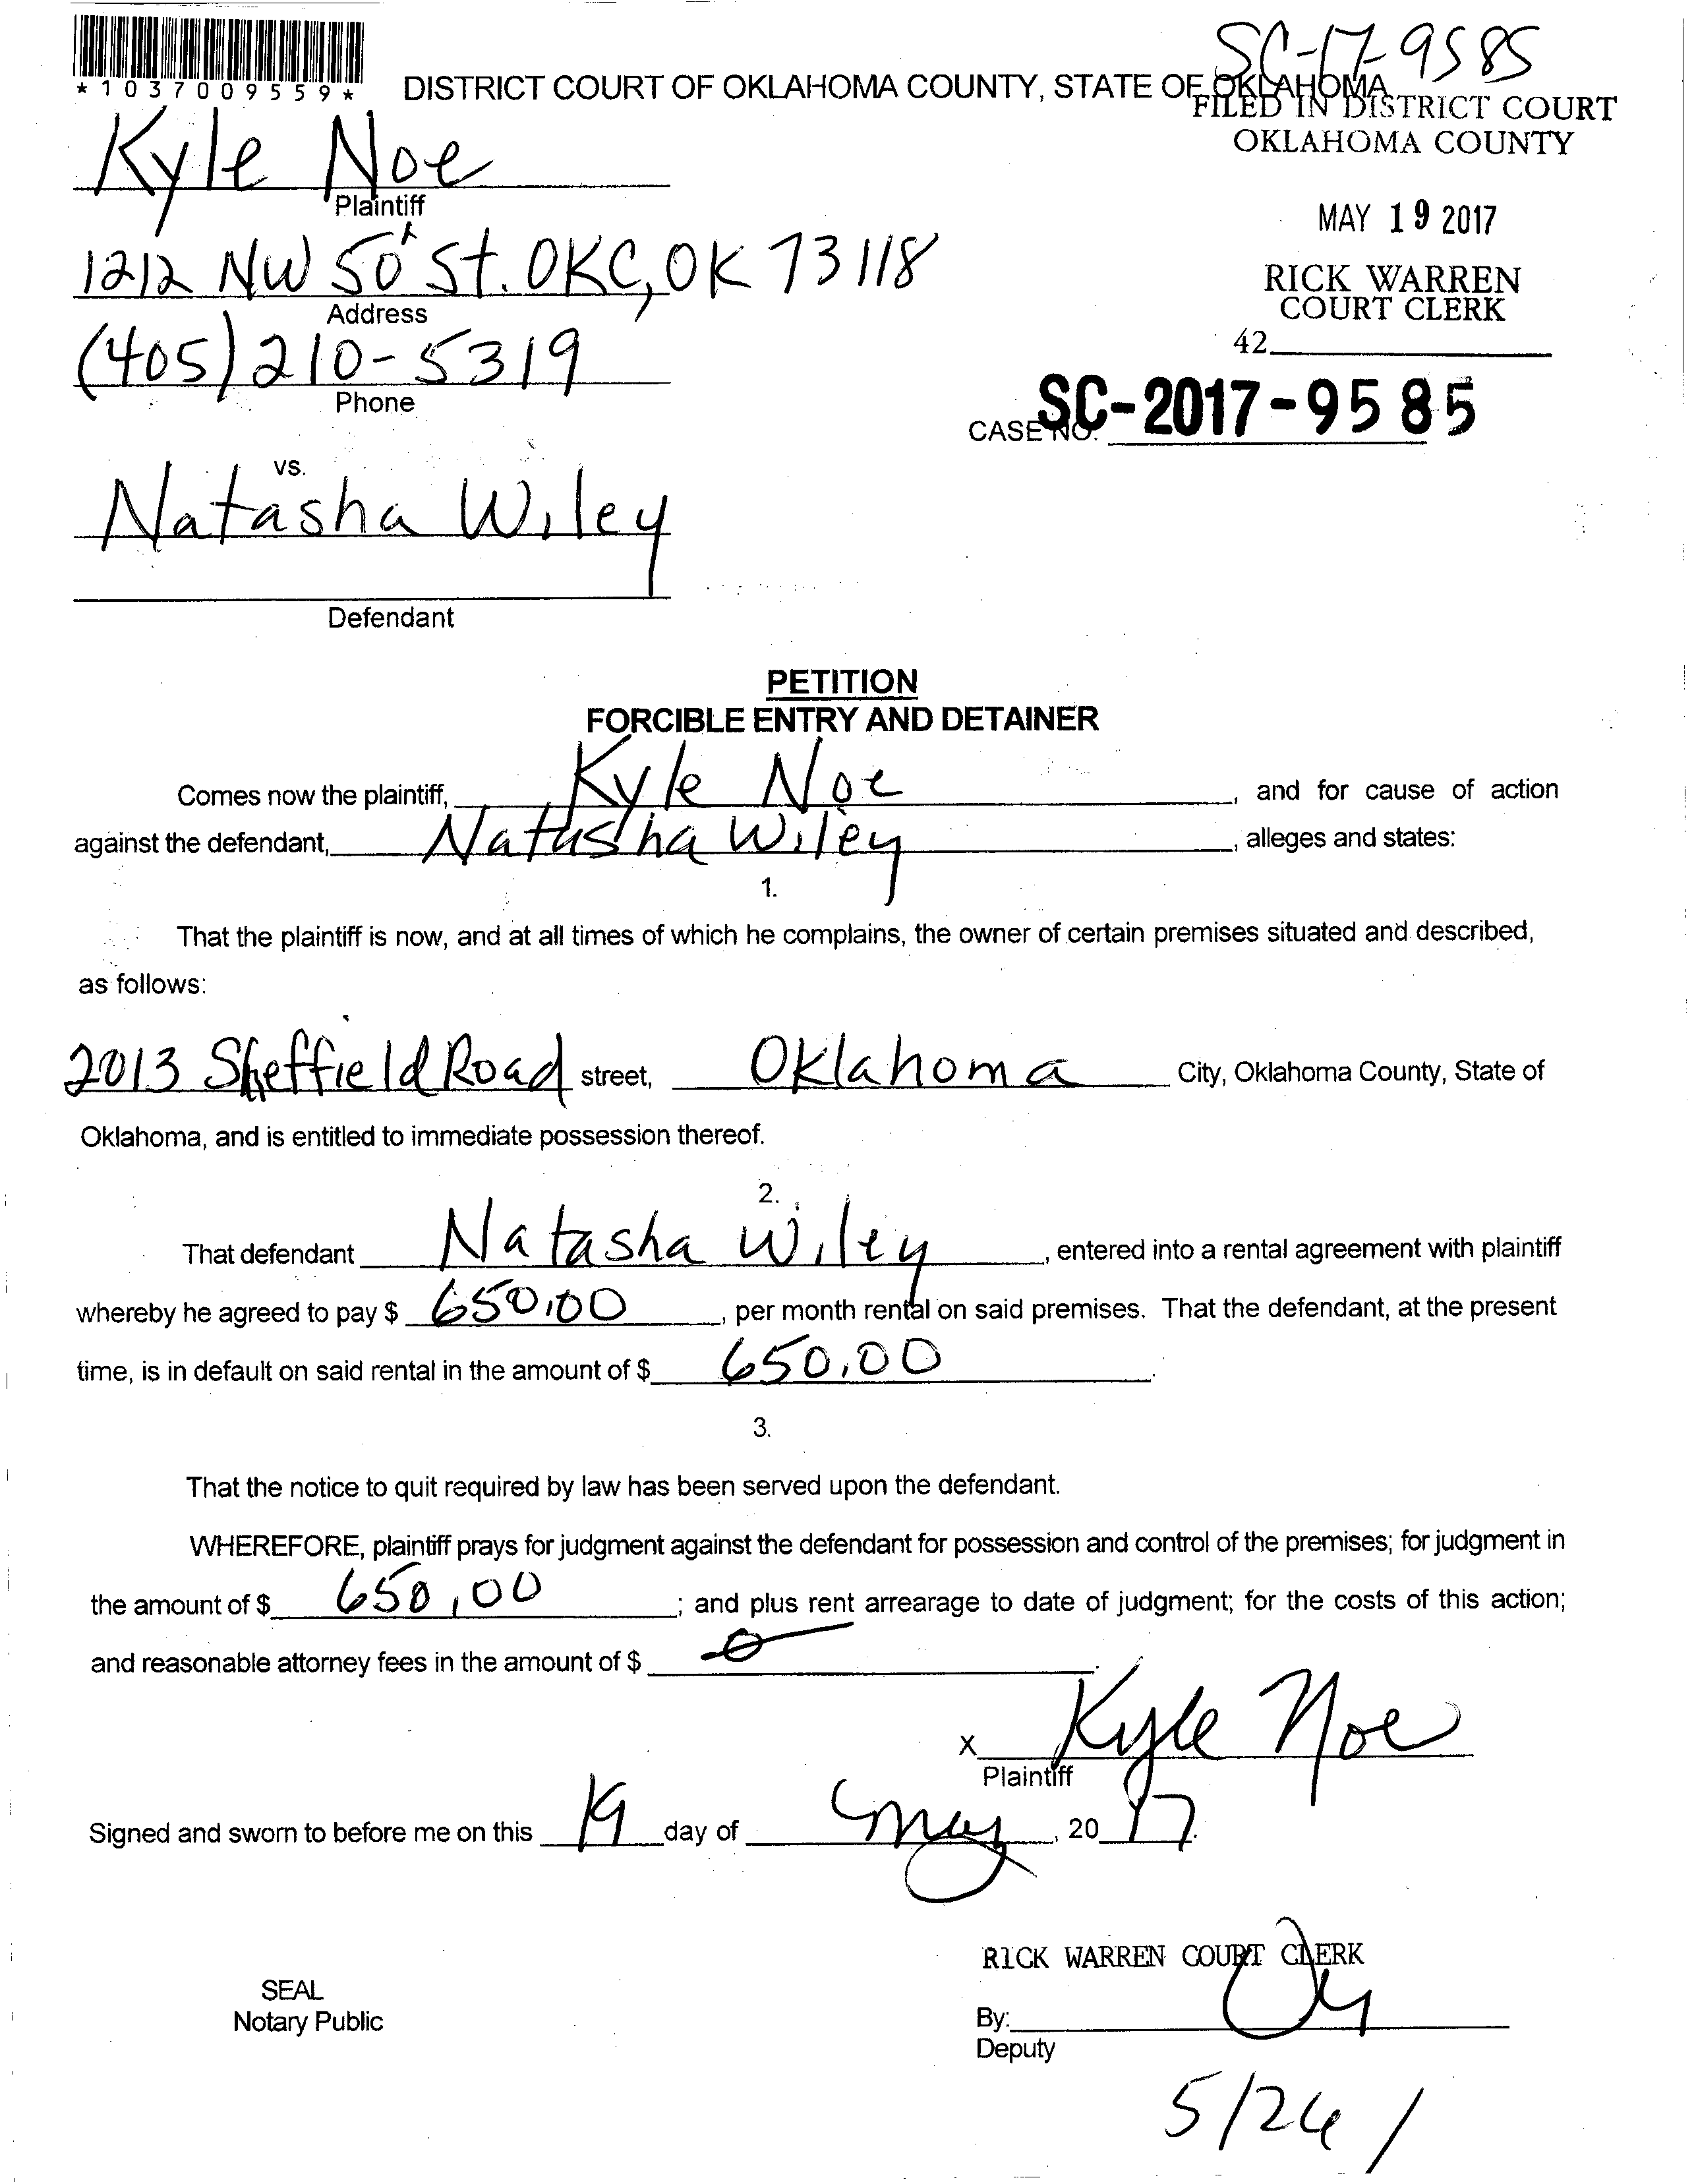 SC-17-9585
*1037009559*
DISTRICT COURT OF OKLAHOMA COUNTY, STATE OF OKLAHOMA
FILED IN DISTRICT COURT
OKLAHOMA COUNTY
Kyle Noe
Plaintiff
MAY 19 2017
1212 NW 50 St. OKC, OK 73118
Address
RICK WARREN
COURT CLERK
(405) 210-5319
Phone
42
CASE NO. SC-2017-9585
vs.
Natasha Wiley
Defendant
PETITION
FORCIBLE ENTRY AND DETAINER
Comes now the plaintiff, Kyle Noe, and for cause of action
against the defendant, Natasha Wiley, alleges and states:
1.
That the plaintiff is now, and at all times of which he complains, the owner of certain premises situated and described,
as follows:
2013 Sheffield Road street, Oklahoma City, Oklahoma County, State of
Oklahoma, and is entitled to immediate possession thereof.
2.
That defendant Natasha Wiley, entered into a rental agreement with plaintiff
whereby he agreed to pay $ 650.00, per month rental on said premises. That the defendant, at the present
time, is in default on said rental in the amount of $ 650.00.
3.
That the notice to quit required by law has been served upon the defendant.
WHEREFORE, plaintiff prays for judgment against the defendant for possession and control of the premises; for judgment in
the amount of $ 650.00; and plus rent arrearage to date of judgment; for the costs of this action;
and reasonable attorney fees in the amount of $ 0.
X Kyle Noe
Plaintiff
Signed and sworn to before me on this 19 day of May, 2017.
RICK WARREN COURT CLERK
SEAL
Notary Public
By:
Deputy